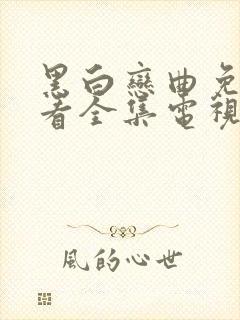 黑白戀曲免
看全集電視
風的心世